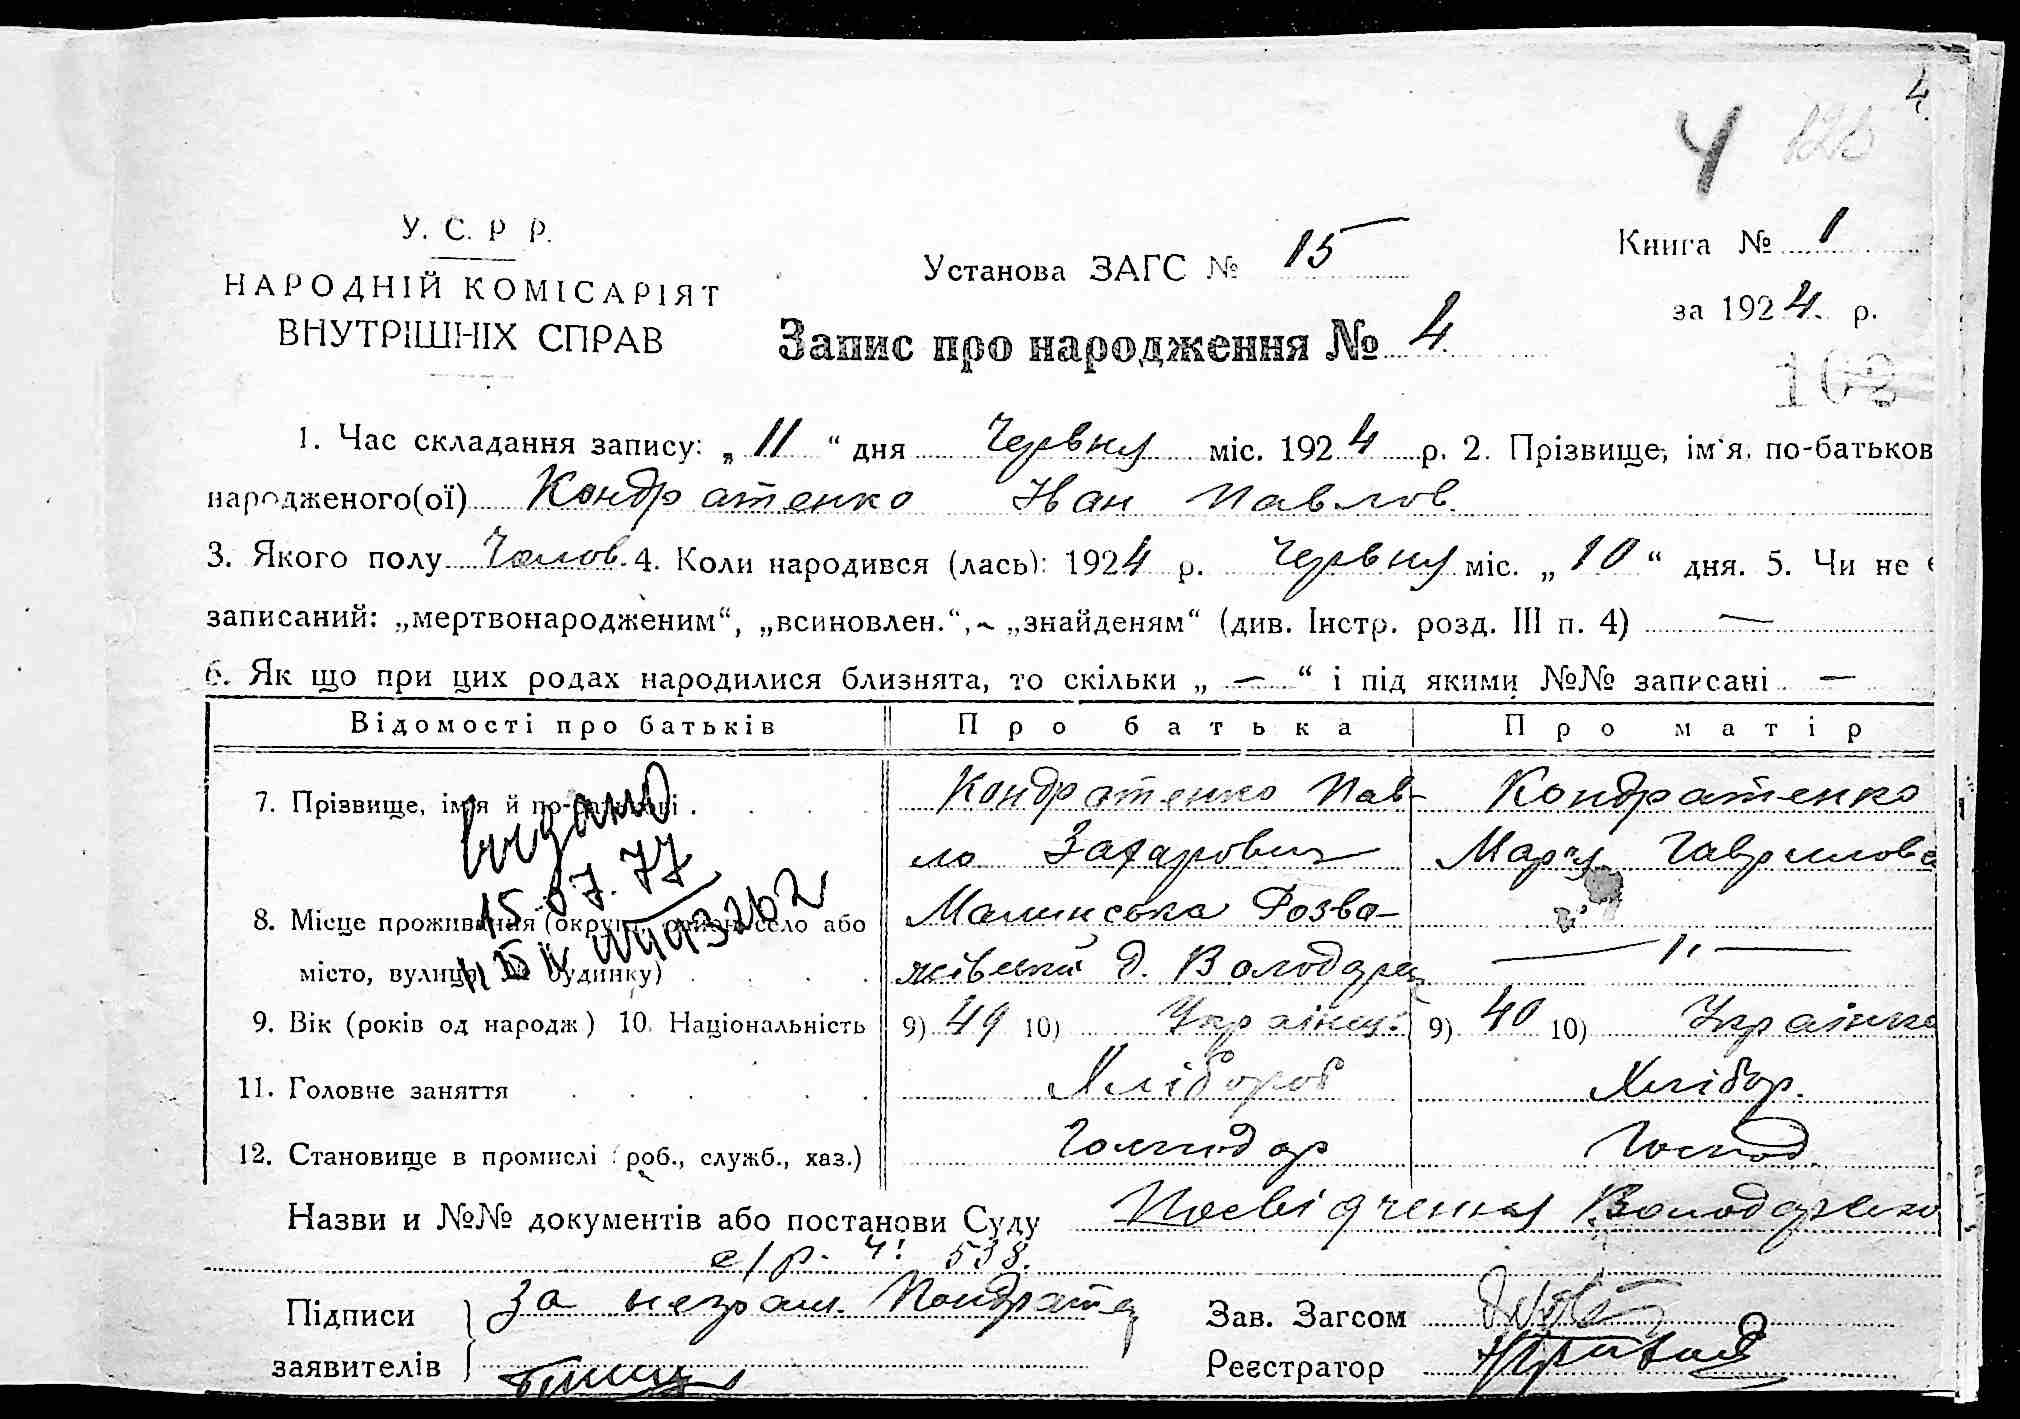 4
4
У. С. Р Р.
НАРОДНІЙ КОМІСАРІЯТ
ВНУТРІШНІХ СПРАВ
Установа ЗАГС № 15
Книга № 1
за 1924. р.
Запис про народження № 4
102
1. Час складання запису: „ 11 “ дня Червня міс. 1924 р. 2. Прізвище, ім'я, по-батьков
народженого(ої) Кондратенко Іван Павлов.
3. Якого полу Чолов. 4. Коли народився (лась): 1924 р. Червня міс. „ 10 “ дня. 5. Чи не є
записаний: „мертвонародженим“, „всиновлен.“, „знайденям“ (див. Інстр. розд. III п. 4) —
6. Як що при цих родах народилися близнята, то скільки „ — “ і під якими №№ записані —
Відомості про батьків Про батька Про матір
7. Прізвище, ім'я й по-батькові Кондратенко Пав- Кондратенко
ло Захарович Мар'я Гаврилова
видано
15.07.77
8. Місце проживання (округа, район, село або Малинська Розва-
місто, вулиця, № будинку) жівський д. Володарка — „ —
9. Вік (років од народж) 10. Національність 9) 49 10) Україн. 9) 40 10) Українка
11. Головне заняття Хлібороб Хлібор.
12. Становище в промислі (роб., служб., хаз.) Господар Господ.
Назви и №№ документів або постанови Суду Посвідчення Володарсько
с/р. ч! 538.
Підписи За неграм. Кондратен
заявителів
Зав. Загсом
Реєстратор